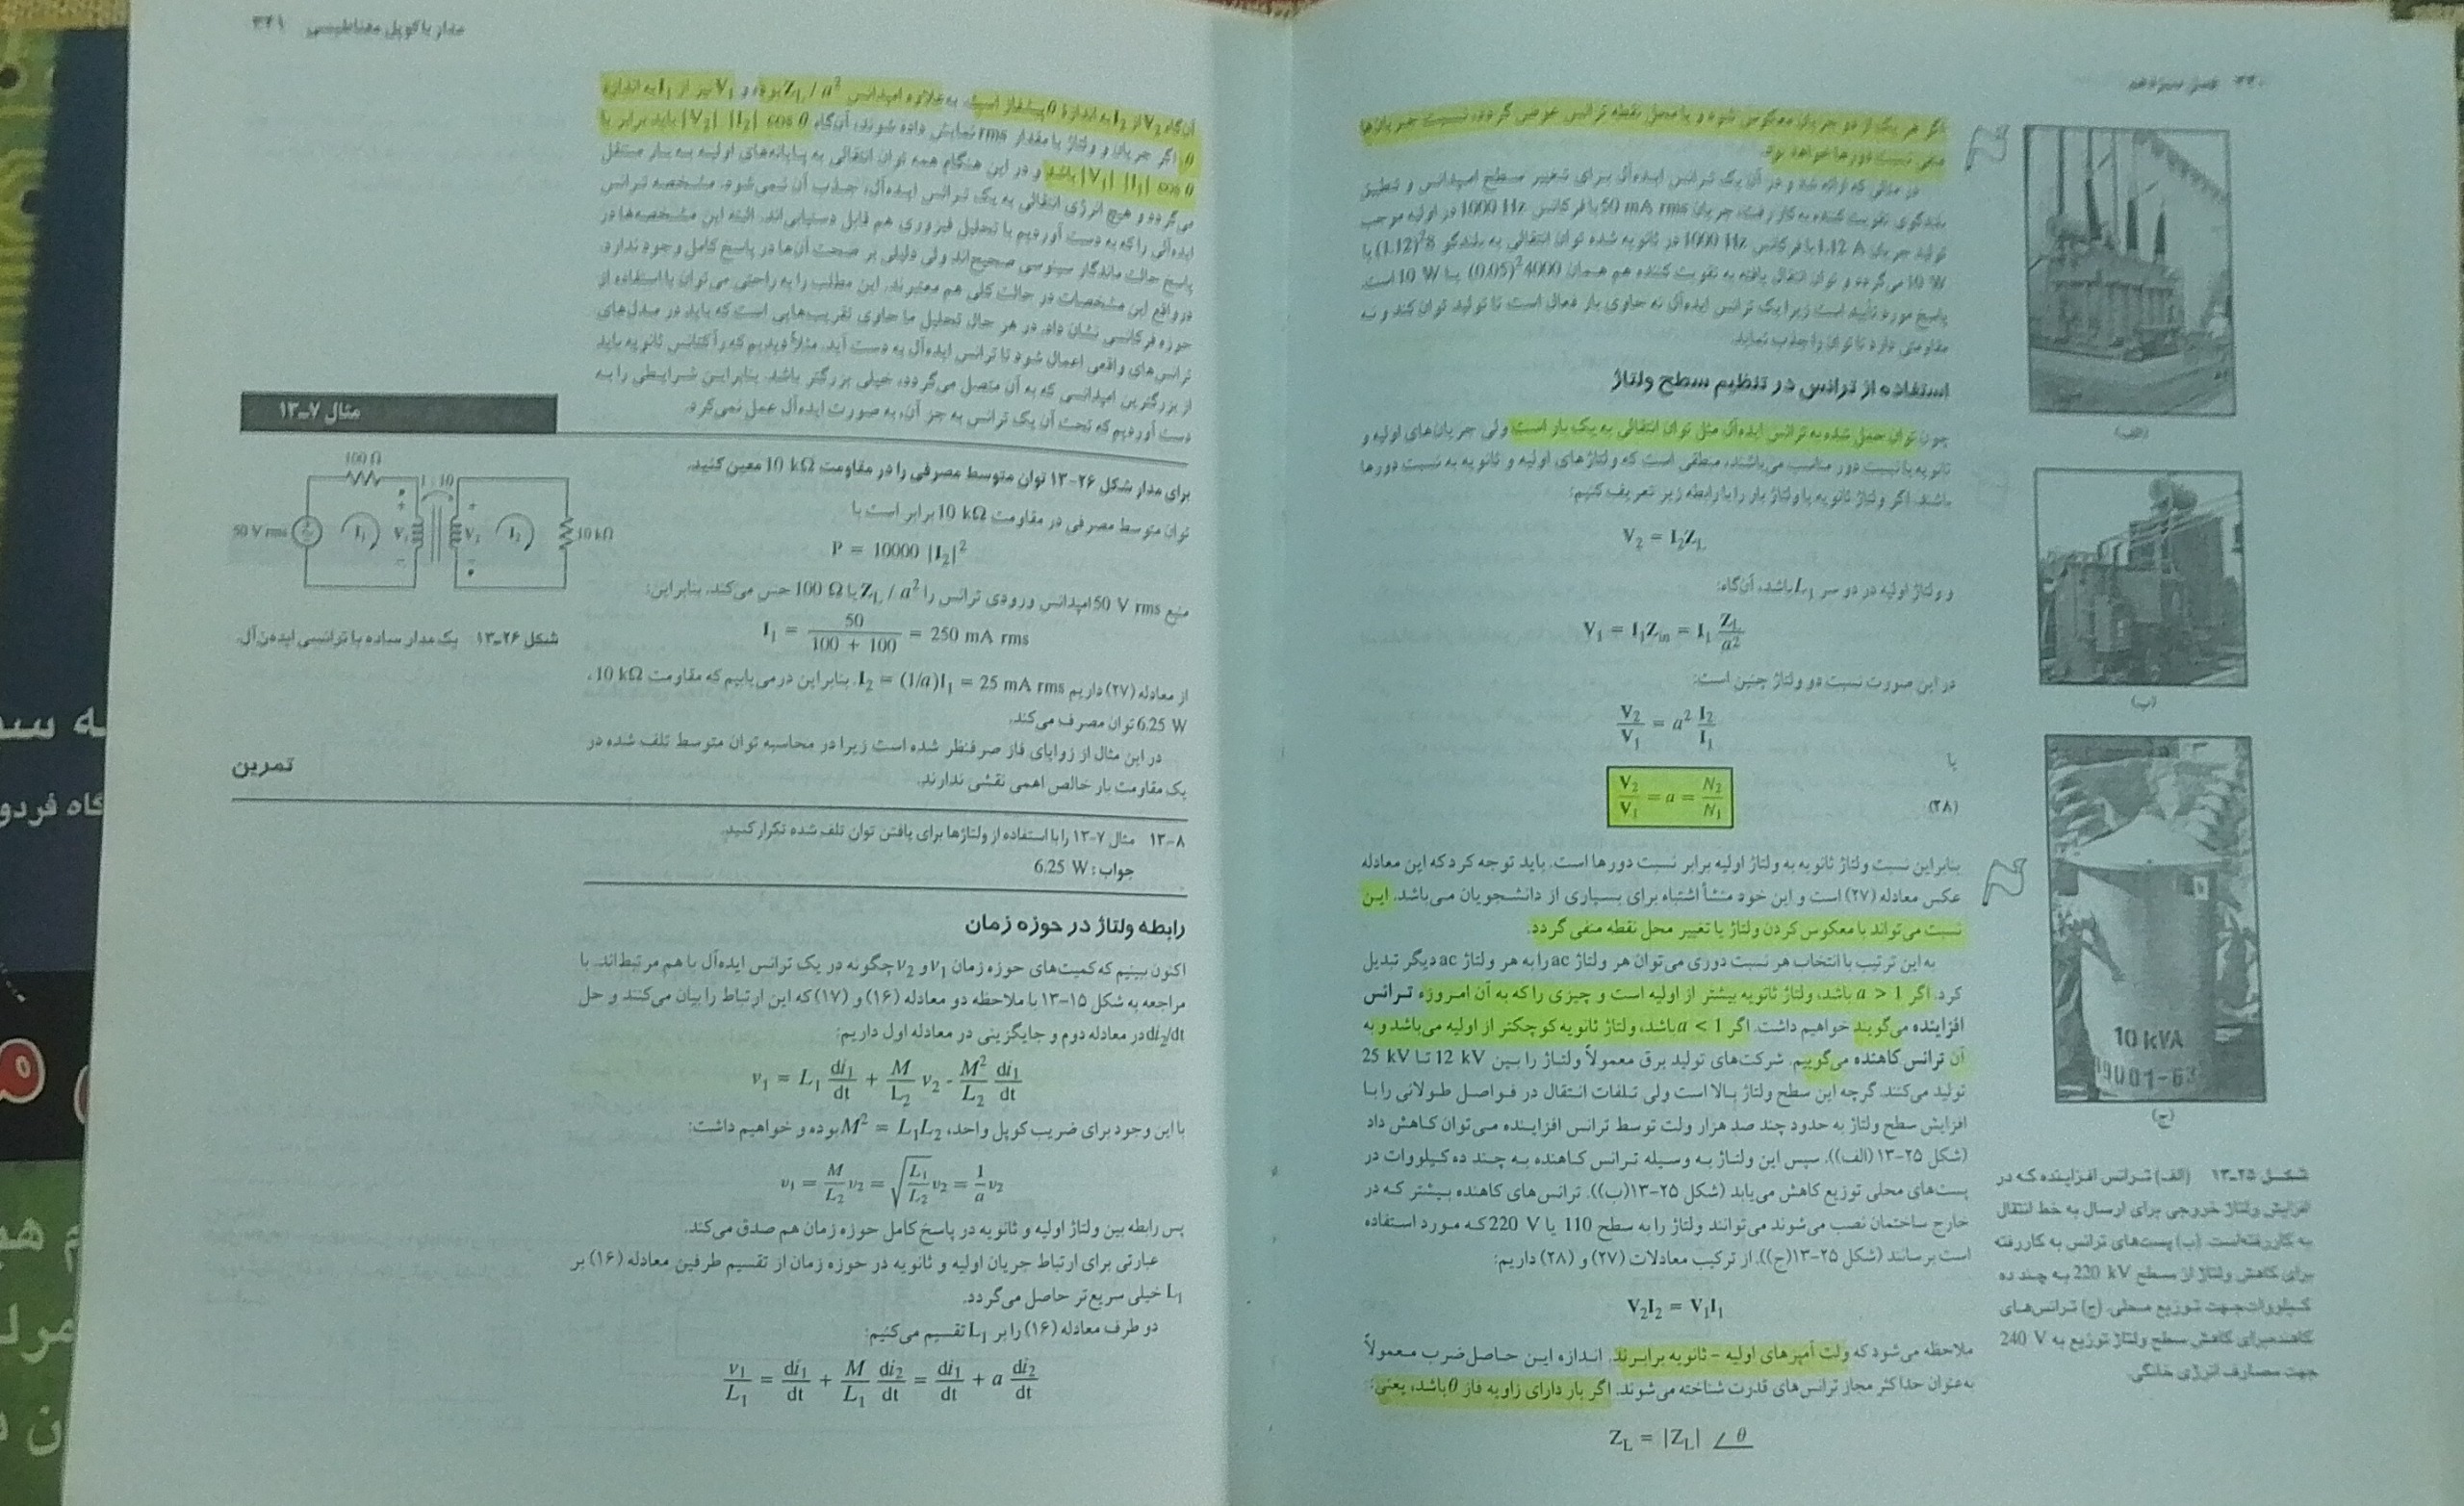 ۳۴۰ فصل سیزدهم
اگر هر یک از دو جریان معکوس شوند و یا محل نقطه ترانس عوض گردد، نسبت جریان‌ها
منفی نسبت دورها خواهد بود.
در مثالی که ارائه شد و در آن یک ترانس ایده‌آل برای تغییر سطح امپدانس و تطبیق
بلندگوی تقویت کننده به کار رفت، جریان 50 mA rms با فرکانس 1000 Hz در اولیه موجب
تولید جریان 1.12 A با فرکانس 1000 Hz در ثانویه شده توان انتقالی به بلندگو (1.12)²8 یا
10 W می‌گردد و توان انتقال یافته به تقویت کننده هم همان (0.05)²4000 یا 10 W است.
پاسخ مورد تأیید است زیرا یک ترانس ایده‌آل نه حاوی بار فعال است تا تولید توان کند و نه
مقاومتی دارد تا توان را جذب نماید.
استفاده از ترانس در تنظیم سطح ولتاژ
چون توان حمل شده به ترانس ایده‌آل مثل توان انتقالی به یک بار است ولی جریان‌های اولیه و
ثانویه با نسبت دور مناسب می‌باشند، منطقی است که ولتاژهای اولیه و ثانویه به نسبت دورها
باشند. اگر ولتاژ ثانویه یا ولتاژ بار را با رابطه زیر تعریف کنیم:
V₂ = I₂Z_L
و ولتاژ اولیه در دو سر L₁ باشد، آن‌گاه:
V₁ = I₁Z_in = I₁ Z_L/a²
در این صورت نسبت دو ولتاژ چنین است:
V₂/V₁ = a² I₂/I₁
یا
V₂/V₁ = a = N₂/N₁ (۲۸)
بنابراین نسبت ولتاژ ثانویه به ولتاژ اولیه برابر نسبت دورها است. باید توجه کرد که این معادله
عکس معادله (۲۷) است و این خود منشأ اشتباه برای بسیاری از دانشجویان می‌باشد. این
نسبت می‌تواند با معکوس کردن ولتاژ یا تغییر محل نقطه منفی گردد.
به این ترتیب با انتخاب هر نسبت دوری می‌توان هر ولتاژ ac را به هر ولتاژ ac دیگر تبدیل
کرد. اگر a > 1 باشد، ولتاژ ثانویه بیشتر از اولیه است و چیزی را که به آن امروزه ترانس
افزاینده می‌گویند خواهیم داشت. اگر a < 1 باشد، ولتاژ ثانویه کوچکتر از اولیه می‌باشد و به
آن ترانس کاهنده می‌گوییم. شرکت‌های تولید برق معمولاً ولتاژ را بین 12 kV تا 25 kV
تولید می‌کنند. گرچه این سطح ولتاژ بالا است ولی تلفات انتقال در فواصل طولانی را با
افزایش سطح ولتاژ به حدود چند صد هزار ولت توسط ترانس افزاینده می‌توان کاهش داد
(شکل ۲۵-۱۳ (الف)). سپس این ولتاژ به وسیله ترانس کاهنده به چند ده کیلووات در
پست‌های محلی توزیع کاهش می‌یابد (شکل ۲۵-۱۳(ب)). ترانس‌های کاهنده بیشتر که در
خارج ساختمان نصب می‌شوند می‌توانند ولتاژ را به سطح 110 یا 220 V که مورد استفاده
است برسانند (شکل ۲۵-۱۳(ج)). از ترکیب معادلات (۲۷) و (۲۸) داریم:
V₂I₂ = V₁I₁
ملاحظه می‌شود که ولت آمپرهای اولیه - ثانویه برابرند. اندازه این حاصل‌ضرب معمولاً
به‌عنوان حداکثر مجاز ترانس‌های قدرت شناخته می‌شوند. اگر بار دارای زاویه فاز θ باشد، یعنی:
Z_L = |Z_L| ∠θ
(الف)
(ب)
10 kVA
(ج)
شکل ۲۵-۱۳ (الف) ترانس افزاینده که در
افزایش ولتاژ خروجی برای ارسال به خط انتقال
به کار رفته‌است. (ب) پست‌های ترانس به کار رفته
برای کاهش ولتاژ از سطح 220 kV به چند ده
کیلووات‌جهت توزیع محلی. (ج) ترانس‌های
کاهنده‌برای کاهش سطح ولتاژ توزیع به 240 V
جهت مصارف انرژی خانگی.
مدار با کوپل مغناطیسی ۳۴۱
آن‌گاه V₂ از I₂ به اندازه θ پیشفاز است. به علاوه امپدانس Z_L / a² بوده و V₁ نیز از I₁ به اندازه
θ. اگر جریان و ولتاژ با مقدار rms نمایش داده شوند، آن‌گاه |V₂| |I₂| cos θ باید برابر با
|V₁| |I₁| cos θ باشد و در این هنگام همه توان انتقالی به پایانه‌های اولیه به بار منتقل
می‌گردد و هیچ انرژی انتقالی به یک ترانس ایده‌آل، جذب آن نمی‌شود. مشخصه ترانس
ایده‌آلی را که به دست آوردیم با تحلیل فیزوری هم قابل دستیابی‌اند. البته این مشخصه‌ها در
پاسخ حالت ماندگار سینوسی صحیح‌اند ولی دلیلی بر صحت آن‌ها در پاسخ کامل وجود ندارد.
در واقع این مشخصات در حالت کلی هم معتبرند. این مطلب را به راحتی می‌توان با استفاده از
حوزه فرکانسی نشان داد. در هر حال تحلیل ما حاوی تقریب‌هایی است که باید در مدل‌های
ترانس‌های واقعی اعمال شود تا ترانس ایده‌آل به دست آید. مثلاً دیدیم که رآکتانس ثانویه باید
از بزرگترین امپدانسی که به آن متصل می‌گردد، خیلی بزرگتر باشد. بنابراین شرایطی را به
دست آوردیم که تحت آن یک ترانس به جز آن، به صورت ایده‌آل عمل نمی‌کرد.
مثال ۷-۱۳
برای مدار شکل ۲۶-۱۳ توان متوسط مصرفی را در مقاومت 10 kΩ معین کنید.
توان متوسط مصرفی در مقاومت 10 kΩ برابر است با
P = 10000 |I₂|²
منبع 50 V rms امپدانس ورودی ترانس را Z_L / a² یا 100 Ω حس می‌کند. بنابراین:
I₁ = 50/(100 + 100) = 250 mA rms
از معادله (۲۷) داریم I₂ = (1/a)I₁ = 25 mA rms. بنابراین در می‌یابیم که مقاومت 10 kΩ،
6.25 W توان مصرف می‌کند.
در این مثال از زوایای فاز صرفنظر شده است زیرا در محاسبه توان متوسط تلف شده در
یک مقاومت بار خالص اهمی نقشی ندارند.
100 Ω
1 : 10
50 V rms
I₁
V₁
V₂
I₂
10 kΩ
شکل ۲۶-۱۳ یک مدار ساده با ترانسی ایده‌ن‌آل.
تمرین
۸-۱۳ مثال ۷-۱۳ را با استفاده از ولتاژها برای یافتن توان تلف شده تکرار کنید.
جواب: 6.25 W
رابطه ولتاژ در حوزه زمان
اکنون ببینیم که کمیت‌های حوزه زمان v₁ و v₂ چگونه در یک ترانس ایده‌آل با هم مرتبط‌اند. با
مراجعه به شکل ۱۵-۱۳ یا ملاحظه دو معادله (۱۶) و (۱۷) که این ارتباط را بیان می‌کنند و حل
di₂/dt در معادله دوم و جایگزینی در معادله اول داریم:
v₁ = L₁ di₁/dt + M/L₂ v₂ - M²/L₂ di₁/dt
با این وجود برای ضریب کوپل واحد، M² = L₁L₂ بوده و خواهیم داشت:
v₁ = M/L₂ v₂ = √(L₁/L₂) v₂ = 1/a v₂
پس رابطه بین ولتاژ اولیه و ثانویه در پاسخ کامل حوزه زمان هم صدق می‌کند.
عبارتی برای ارتباط جریان اولیه و ثانویه در حوزه زمان از تقسیم طرفین معادله (۱۶) بر
L₁ خیلی سریع‌تر حاصل می‌گردد.
دو طرف معادله (۱۶) را بر L₁ تقسیم می‌کنیم:
v₁/L₁ = di₁/dt + M/L₁ di₂/dt = di₁/dt + a di₂/dt